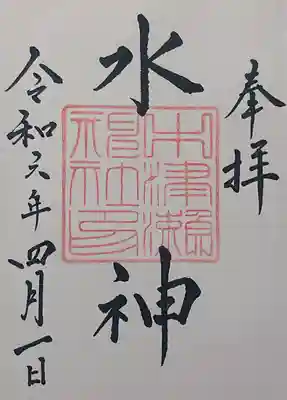 奉拝
水神
津瀬
神社印
令和六年四月一日